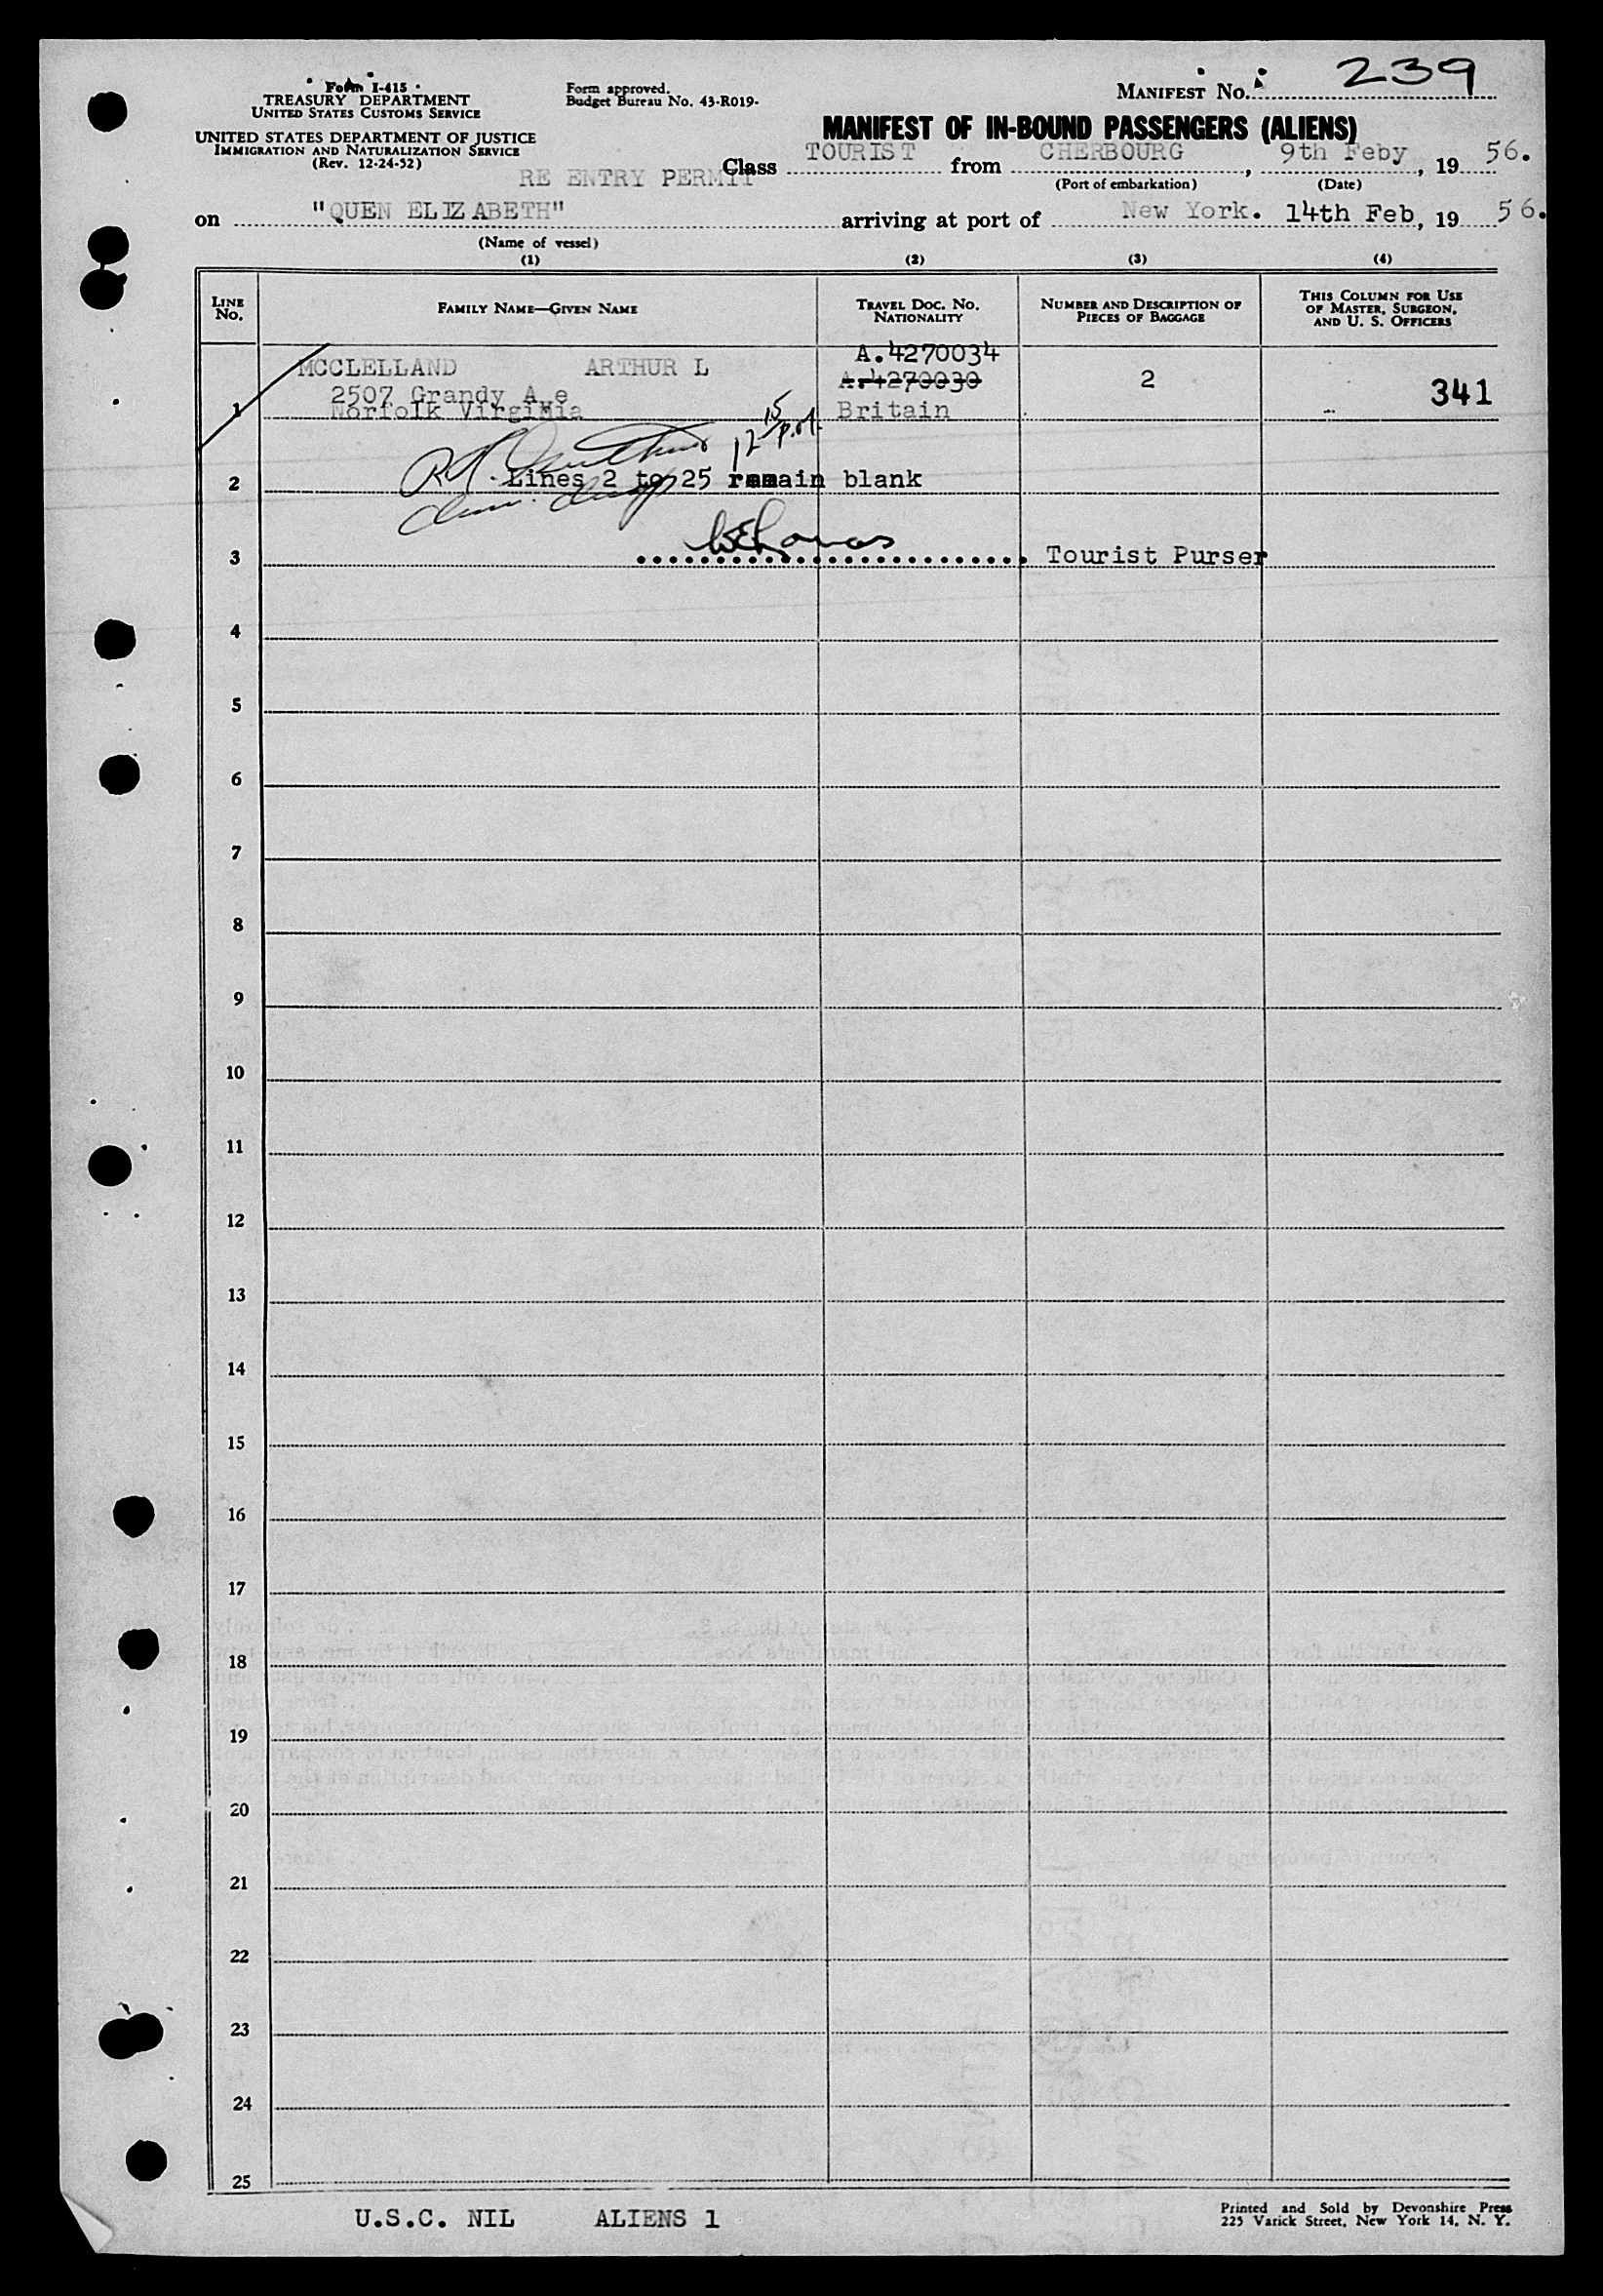 Form I-415
TREASURY DEPARTMENT
UNITED STATES CUSTOMS SERVICE
UNITED STATES DEPARTMENT OF JUSTICE
IMMIGRATION AND NATURALIZATION SERVICE
(Rev. 12-24-52)
Form approved.
Budget Bureau No. 43-R019.
MANIFEST No. 239
MANIFEST OF IN-BOUND PASSENGERS (ALIENS)
RE ENTRY PERMIT
Class TOURIST from CHERBOURG, 9th Feby, 19 56.
(Port of embarkation) (Date)
on "QUEN ELIZABETH" arriving at port of New York. 14th Feb, 19 56.
(Name of vessel)
(1) (2) (3) (4)
LINE No. FAMILY NAME—GIVEN NAME TRAVEL DOC. No. NATIONALITY NUMBER AND DESCRIPTION OF PIECES OF BAGGAGE THIS COLUMN FOR USE OF MASTER, SURGEON, AND U. S. OFFICERS
A.4270034
MCCLELLAND ARTHUR L A.4270030 2 341
2507 Grandy A e
1 Norfolk Virginia Britain
12 15
2 Lines 2 to 25 remain blank
3 Tourist Purser
4
5
6
7
8
9
10
11
12
13
14
15
16
17
18
19
20
21
22
23
24
25
U.S.C. NIL ALIENS 1
Printed and Sold by Devonshire Press
225 Varick Street, New York 14, N. Y.